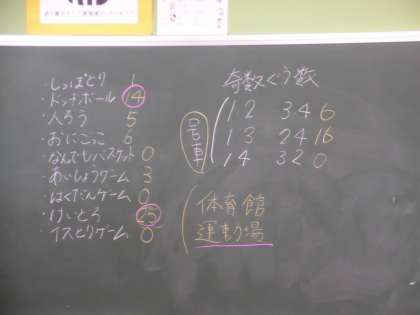 ・しっぽとり 1
・ドッチボール 14
・人ろう 5
・おにごっこ 6
・なんでもバスケット 0
・あいしょうゲーム 3
・ばくだんゲーム 0
・けいどろ 25
・イスとりゲーム 0
奇数 ぐう数
号車
12 34 6
13 24 16
14 32 0
体育館
運動場